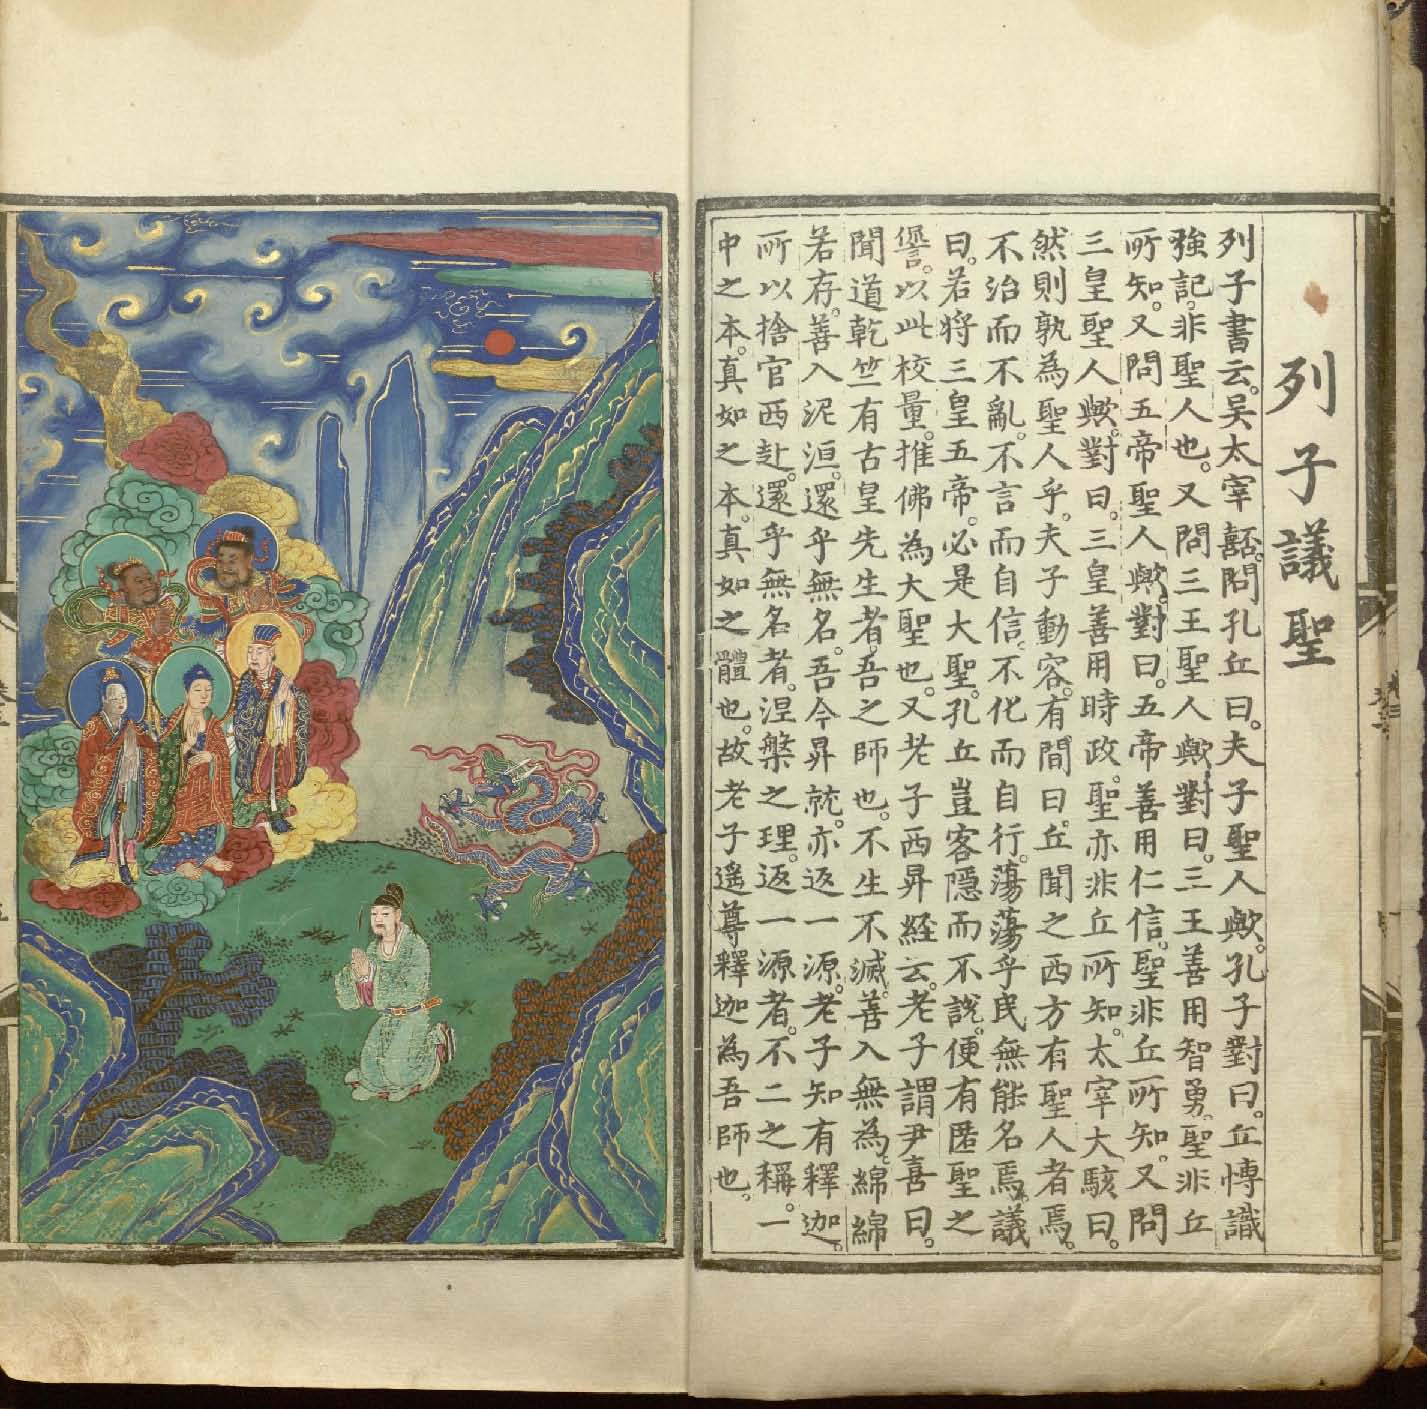 列子議聖
列子書云。吴太宰嚭。問孔丘曰。夫子聖人歟。孔子對曰。丘博識
強記。非聖人也。又問三王聖人歟。對曰。三王善用智勇。聖非丘
所知。又問五帝聖人歟。對曰。五帝善用仁信。聖非丘所知。又問
三皇聖人歟。對曰。三皇善用時政。聖亦非丘所知。太宰大駭曰。
然則孰為聖人乎。夫子動容。有間曰。丘聞之西方有聖人者焉。
不治而不亂。不言而自信。不化而自行。蕩蕩乎民無能名焉。議
曰。若將三皇五帝。必是大聖。孔丘豈客隱而不說。便有匿聖之
𠎝。以此校量。推佛為大聖也。又老子西昇経云。老子謂尹喜曰。
聞道乾竺有古皇先生者。吾之師也。不生不滅。善入無為。綿綿
若存。善入泥洹。還乎無名。吾今昇就。亦返一源。老子知有釋迦。
所以捨官西赴。還乎無名者。涅槃之理。返一源者。不二之稱。一
中之本。真如之本。真如之體也。故老子遙尊釋迦為吾師也。